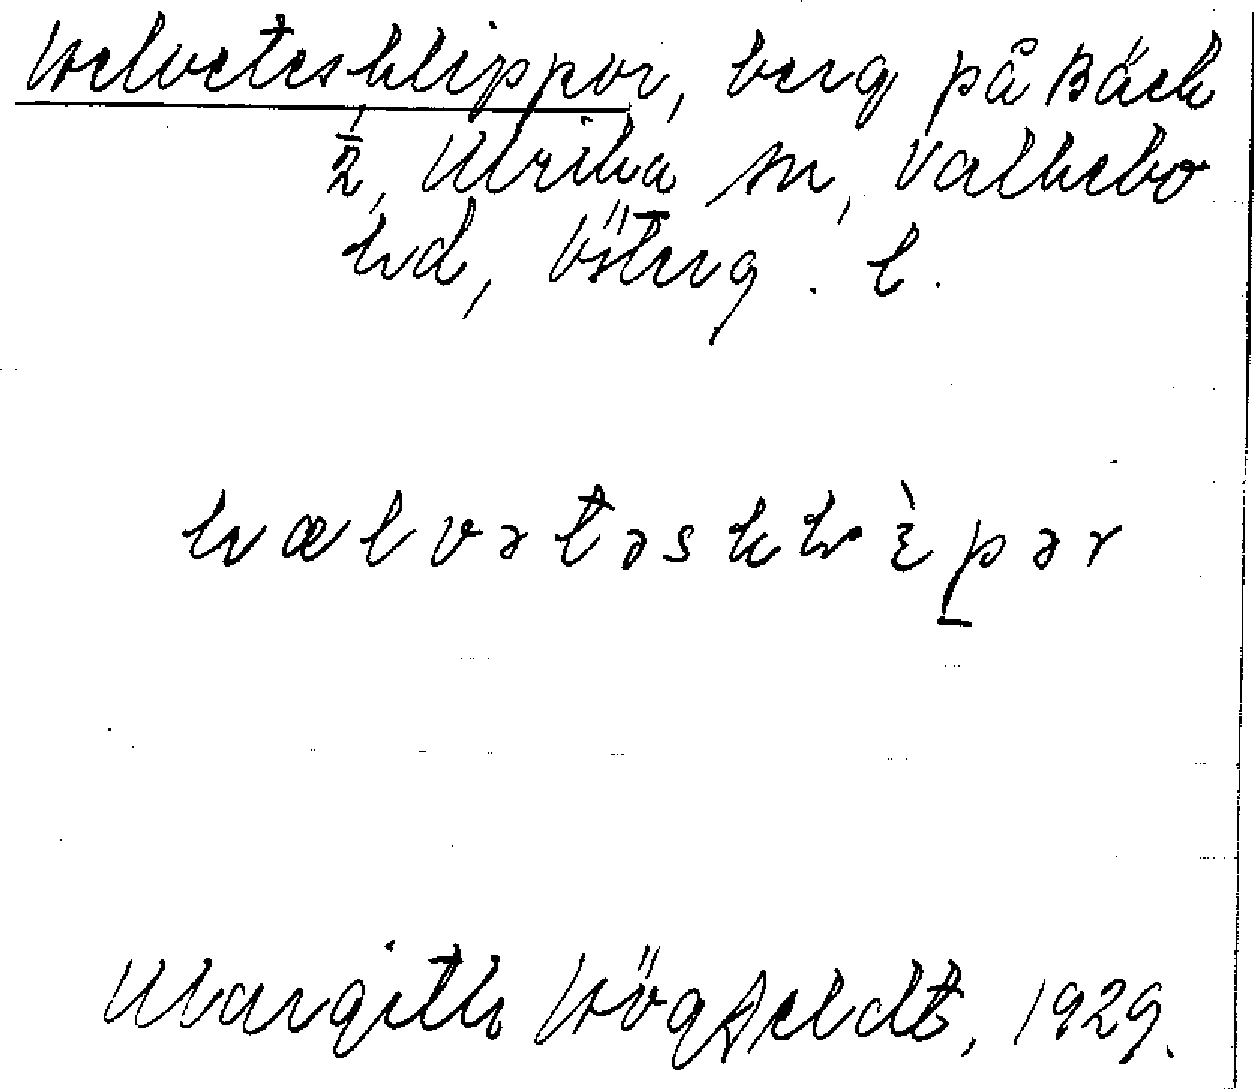 Helvetesklippor, berg på Bäck
1/2, Ulrika sn, Valkebo
hd, Österg. l.
hælvətəsklèpər
Margith Högfeldt, 1929.